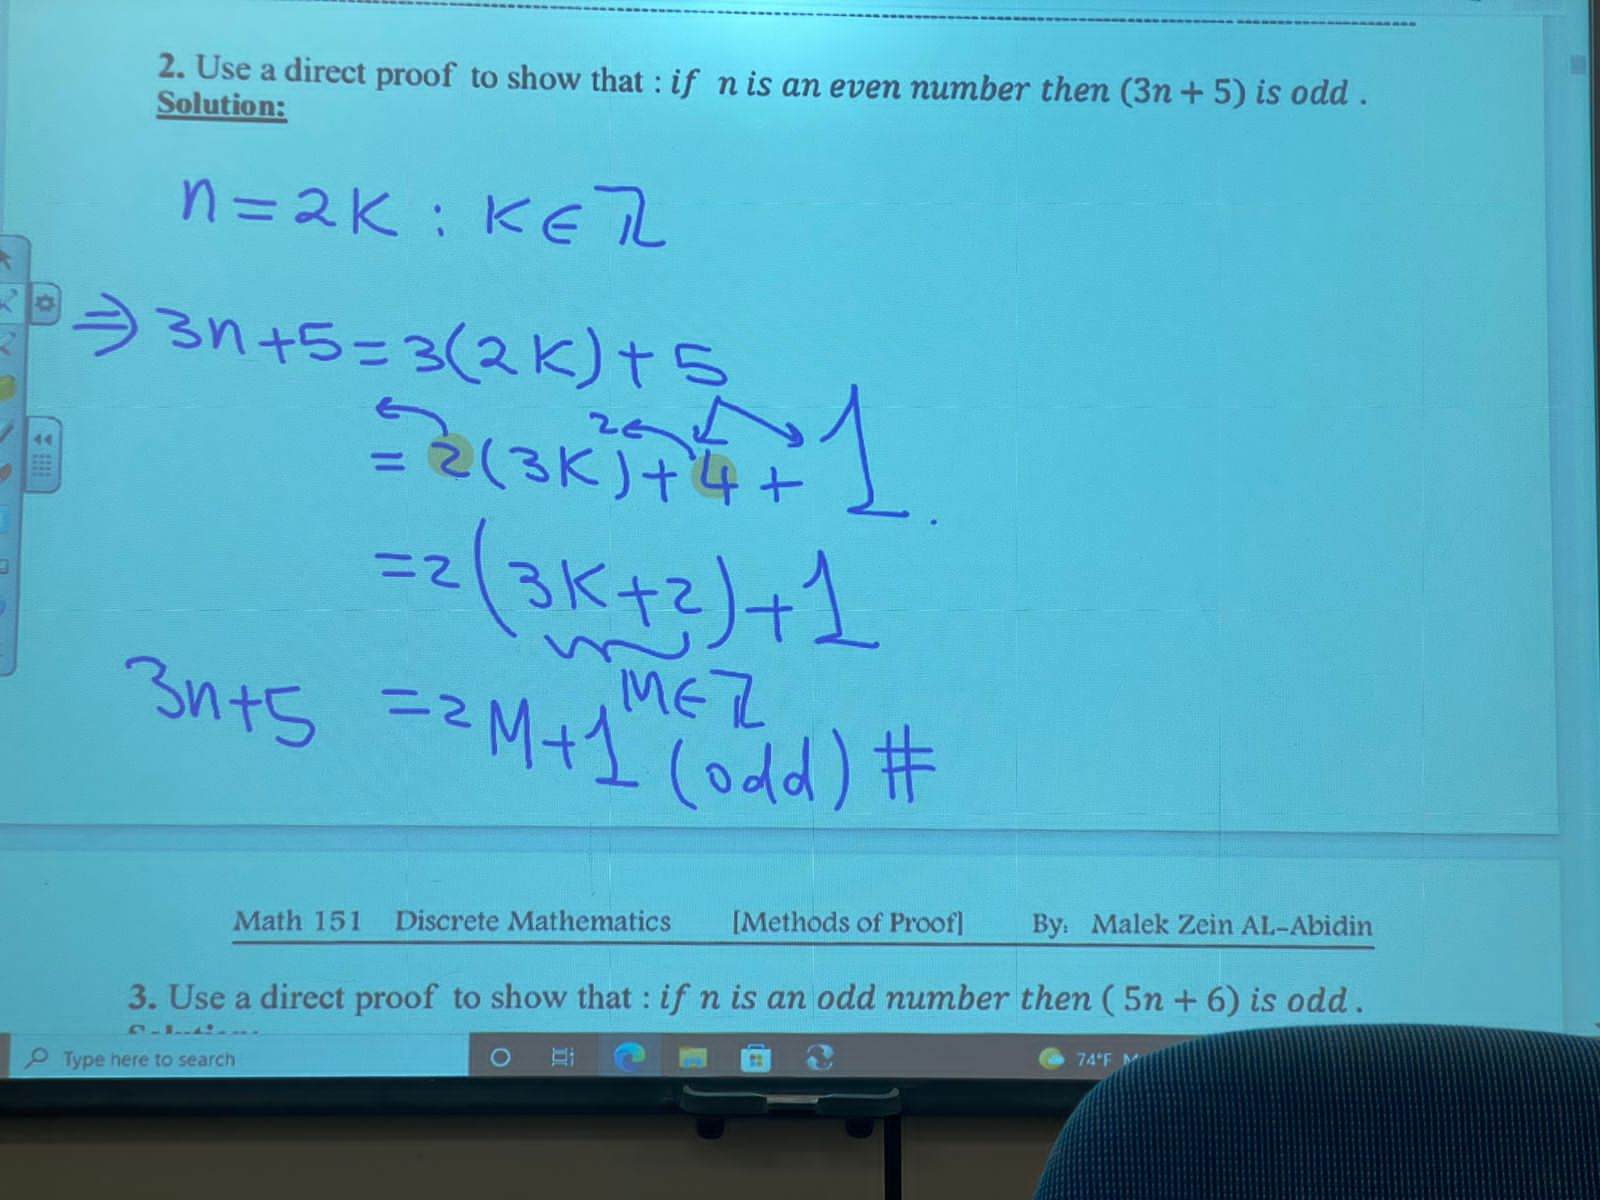 2. Use a direct proof to show that : if n is an even number then (3n + 5) is odd .
Solution:
n = 2K : K ∈ ℤ
⇒ 3n + 5 = 3(2K) + 5
2
= 2(3K) + 4 + 1.
= 2(3K + 2) + 1
M ∈ ℤ
3n+5 = 2M + 1 (odd) #
Math 151 Discrete Mathematics [Methods of Proof] By: Malek Zein AL-Abidin
3. Use a direct proof to show that : if n is an odd number then ( 5n + 6) is odd .
Type here to search
74°F